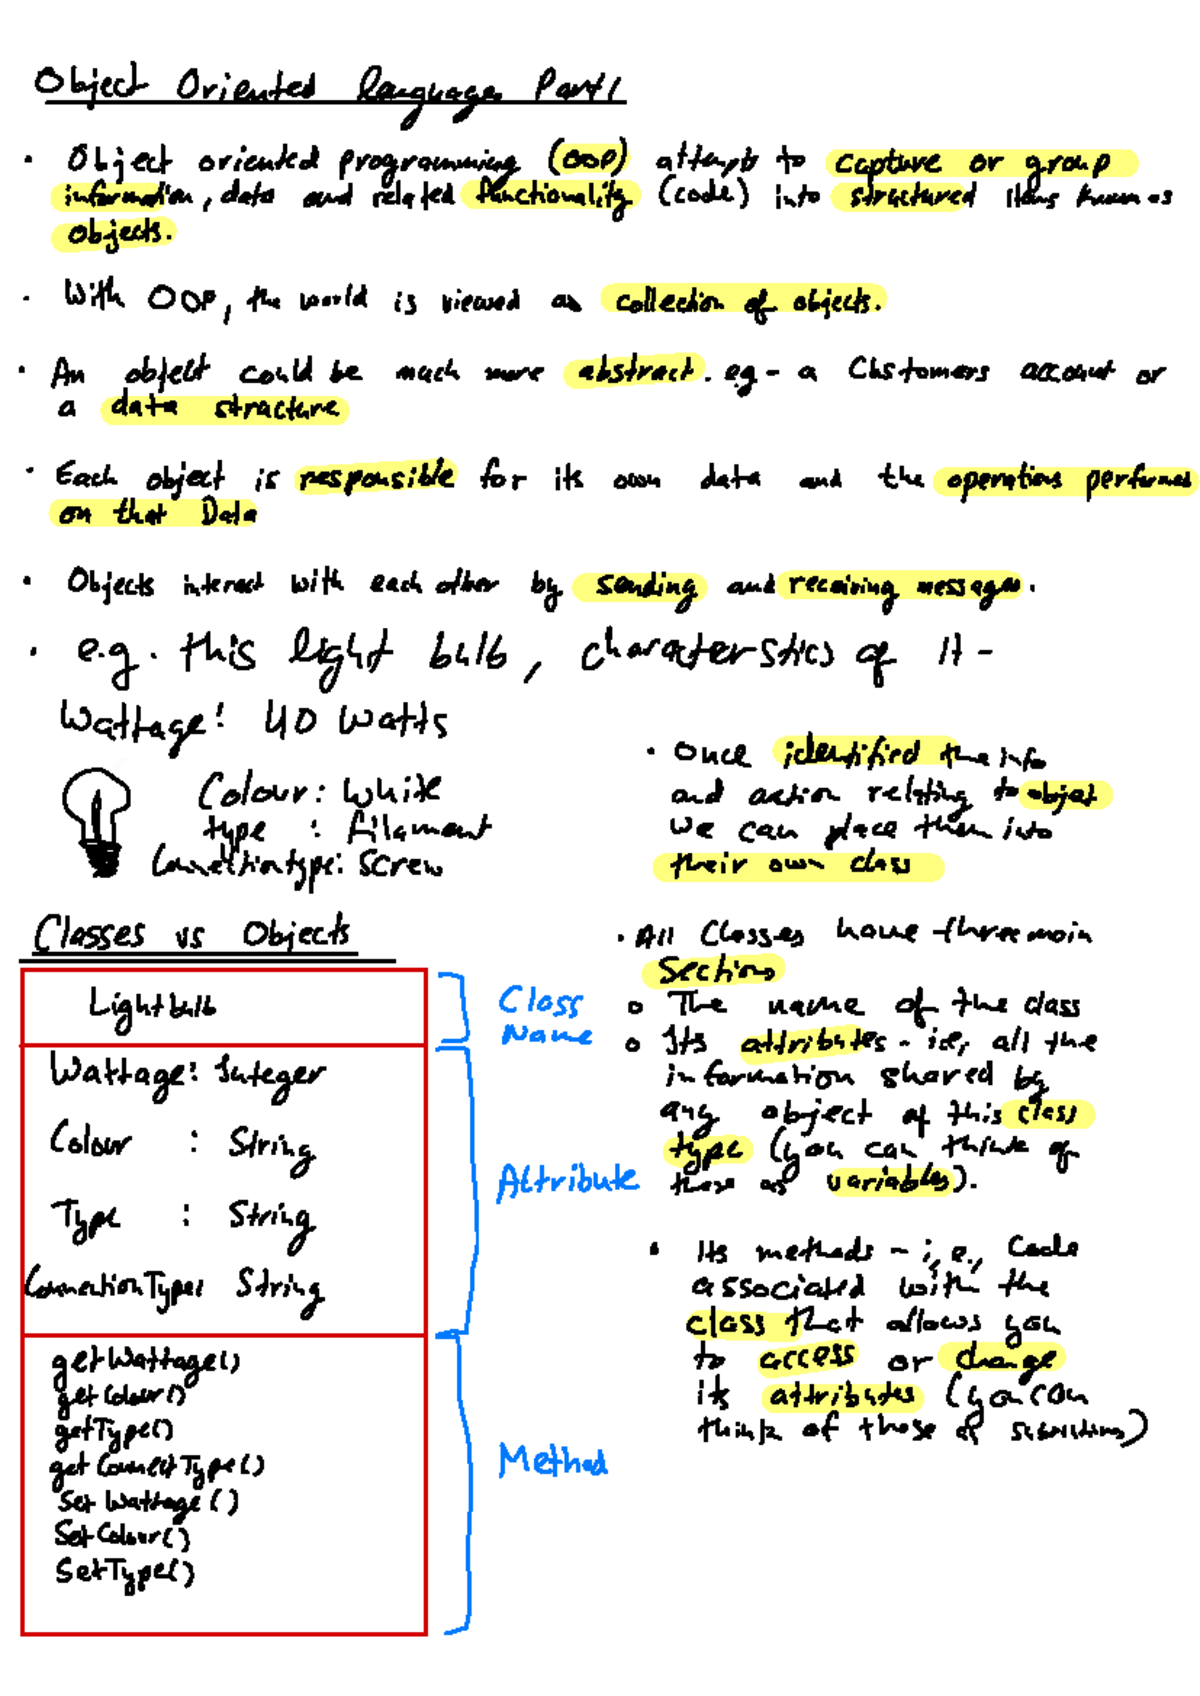 Object Oriented language Part 1
• Object oriented programming (OOP) attempts to capture or group
information, data and related functionality (code) into structured items known as
objects.
• With OOP, the world is viewed as collection of objects.
• An object could be much more abstract. eg - a Customers account or
a data structure
• Each object is responsible for its own data and the operations performed
on that Data
• Objects interact with each other by sending and receiving messages.
• e.g. this light bulb, characterstics of it -
Wattage: 40 watts
Colour: White
type : filament
Connection type: Screw
• Once identified the info
and action relating to object
we can place them into
their own class
Classes vs Objects
Lightbulb
Wattage: Integer
Colour : String
Type : String
ConnectionType: String
getWattage()
getColour()
getType()
getConnectType()
SetWattage()
SetColour()
SetType()
Class
Name
Attribute
Method
• All Classes have three main
Sections
o The name of the class
o Its attributes - i.e, all the
information shared by
any object of this class
type (you can think of
these as variables).
• Its methods - i.e., Code
associated with the
class that allows you
to access or change
its attributes (you can
think of those as subroutines)